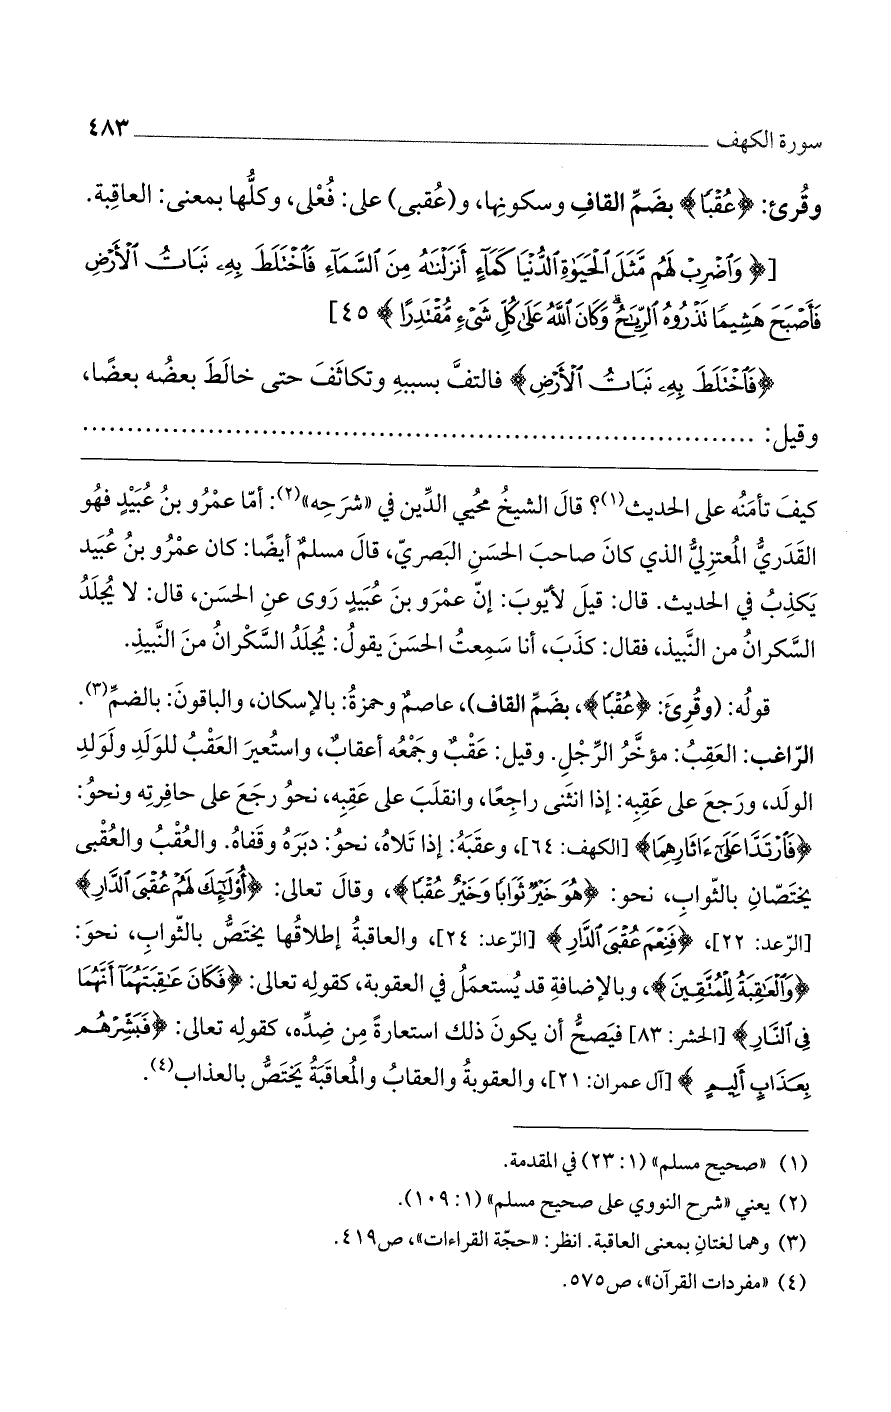 سورة الكهف ٤٨٣
وقُرئ: ﴿عُقْبًا﴾ بضَمِّ القافِ وسكونِها، و(عُقبى) على: فُعْلى، وكلُّها بمعنى: العاقِبة.
[﴿وَٱضْرِبْ لَهُم مَّثَلَ ٱلْحَيَوٰةِ ٱلدُّنْيَا كَمَآءٍ أَنزَلْنَٰهُ مِنَ ٱلسَّمَآءِ فَٱخْتَلَطَ بِهِۦ نَبَاتُ ٱلْأَرْضِ
فَأَصْبَحَ هَشِيمًا تَذْرُوهُ ٱلرِّيَٰحُ ۗ وَكَانَ ٱللَّهُ عَلَىٰ كُلِّ شَىْءٍ مُّقْتَدِرًا﴾ ٤٥]
﴿فَٱخْتَلَطَ بِهِۦ نَبَاتُ ٱلْأَرْضِ﴾ فالتفَّ بسببهِ وتكاثَفَ حتى خالَطَ بعضُه بعضًا،
وقيل: ......................................................................
كيفَ تأمَنُه على الحديث(١)؟ قالَ الشيخُ محُيي الدِّين في «شرَحِه»(٢): أمّا عمْرُو بنُ عُبَيْدٍ فهُو
القَدَريُّ المُعتزِليُّ الذي كانَ صاحبَ الحسَنِ البَصريّ، قالَ مسلمٌ أيضًا: كان عمْرُو بنُ عُبَيد
يَكذِبُ في الحديث. قال: قيلَ لأيّوبَ: إنّ عمْرَو بنَ عُبَيدٍ رَوى عنِ الحسَن، قال: لا يُجلَدُ
السَّكرانُ من النَّبيذ، فقال: كذَبَ، أنا سَمِعتُ الحسَنَ يقولُ: يُجلَدُ السَّكْرانُ منَ النَّبيذِ.
قولُه: (وقُرِئَ: ﴿عُقْبًا﴾، بضَمِّ القاف)، عاصمٌ وحمزةُ: بالإسكان، والباقونَ: بالضمِّ(٣).
الرّاغب: العَقِبُ: مؤخَّرُ الرِّجْلِ. وقيل: عَقْبٌ وجَمْعُه أعقابٌ، واستُعيرَ العَقْبُ للوَلَدِ ولَوَلدِ
الولَد، ورَجعَ على عَقِبِه: إذا انثَنى راجِعًا، وانقلَبَ على عَقِبِه، نحوُ رجَعَ على حافِرتِه ونحوُ:
﴿فَٱرْتَدَّا عَلَىٰٓ ءَاثَارِهِمَا﴾ [الكهف: ٦٤]، وعقَبَهُ: إذا تَلاهُ، نحوُ: دبَرَهُ وقَفاهُ. والعُقْبُ والعُقْبى
يختَصّانِ بالثّواب، نحو: ﴿هُوَ خَيْرٌ ثَوَابًا وَخَيْرٌ عُقْبًا﴾، وقالَ تعالى: ﴿أُوْلَٰٓئِكَ لَهُمْ عُقْبَى ٱلدَّارِ﴾
[الرّعد: ٢٢]، ﴿فَنِعْمَ عُقْبَى ٱلدَّارِ﴾ [الرّعد: ٢٤]، والعاقبةُ إطلاقُها يختَصُّ بالثّواب، نحوَ:
﴿وَٱلْعَٰقِبَةُ لِلْمُتَّقِينَ﴾، وبالإضافةِ قد يُستعمَلُ في العقوبة، كقولِه تعالى: ﴿فَكَانَ عَٰقِبَتَهُمَآ أَنَّهُمَا
فِى ٱلنَّارِ﴾ [الحشر: ٨٣] فيَصحُّ أن يكونَ ذلك استعارةً مِن ضِدِّه، كقولِه تعالى: ﴿فَبَشِّرْهُم
بِعَذَابٍ أَلِيمٍ﴾ [آل عمران: ٢١]، والعقوبةُ والعقابُ والمُعاقَبَةُ يَختَصُّ بالعذاب(٤).
(١) «صحيح مسلم» (١: ٢٣) في المقدمة.
(٢) يعني «شرح النووي على صحيح مسلم» (١: ١٠٩).
(٣) وهما لغتانِ بمعنى العاقبة. انظر: «حجّة القراءات»، ص٤١٩.
(٤) «مفردات القرآن»، ص٥٧٥.